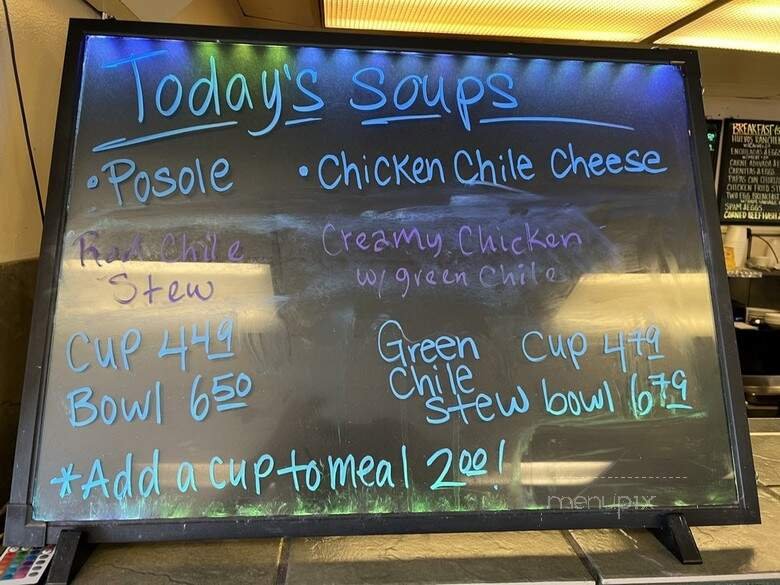 Today's Soups
• Posole
• Chicken Chile Cheese
Red Chile
Stew
Creamy Chicken
w/ green Chile
Cup 4 49
Bowl 6 50
Green
Chile
Stew
Cup 4 79
bowl 6 79
*Add a cup to meal 2 00!
menupix
BREAKFAST
HUEVOS RANCHER
ENCHILADAS & EGGS
CARNE ADOVADA
CARNITAS & EGGS
PAPAS CON CHORIZO
CHICKEN FRIED
TWO EGG BREAKFAST
SPAM & EGGS
CORNED BEEF HASH